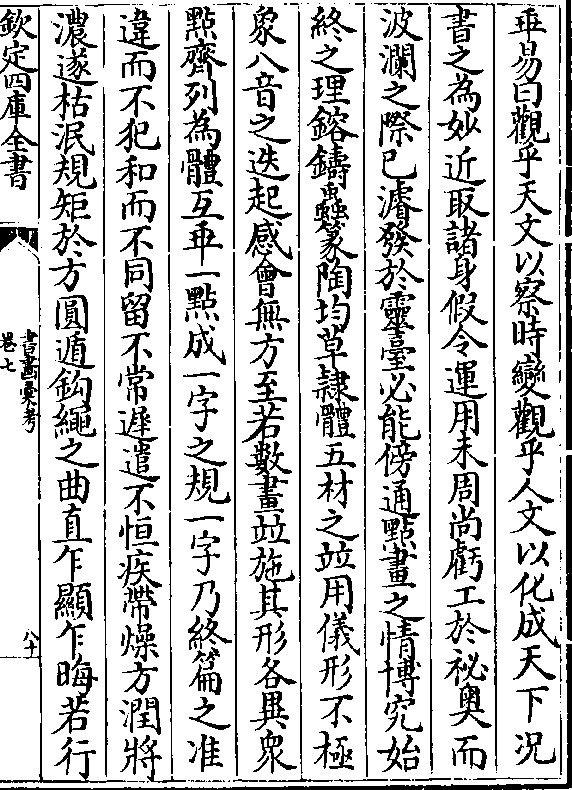 乖易曰觀乎天文以察時變觀乎人文以化成天下况
書之為妙近取諸身假令運用未周尚虧工於祕奧而
波瀾之際已濬發於靈臺必能傍通點畫之情博究始
終之理鎔鑄蟲篆陶均草隸體五材之竝用儀形不極
象八音之迭起感會無方至若數畫竝施其形各異衆
點齊列為體互乖一點成一字之規一字乃終篇之准
違而不犯和而不同留不常遲遣不恒疾帶燥方潤將
濃遂枯泯規矩於方圓遁鈎繩之曲直乍顯乍晦若行
欽定四庫全書
書畫彙考
卷七
八十